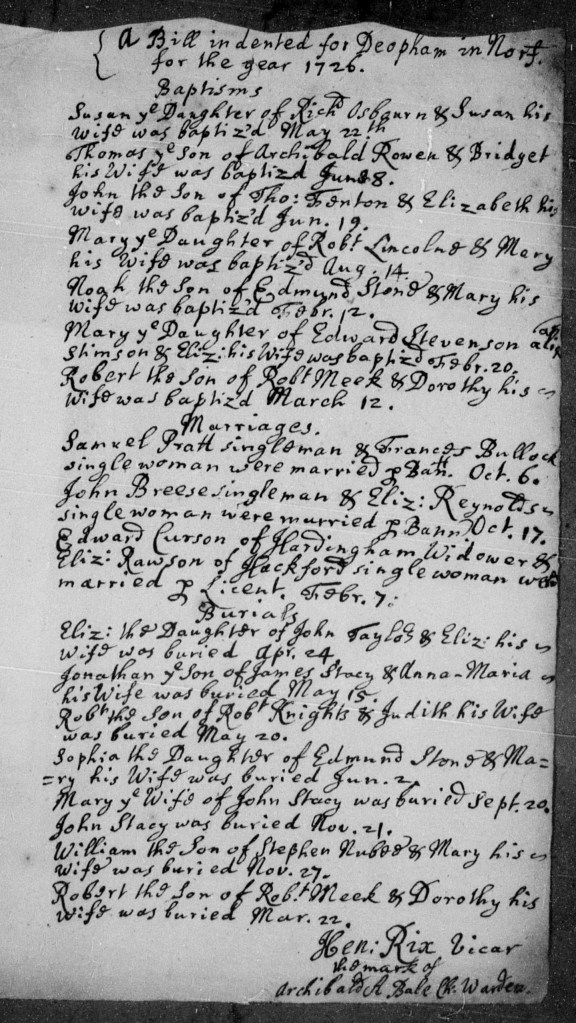 A Bill indented for Deopham in Norf.
for the year 1726.
Baptisms
Susan ye Daughter of Richd Osbourn & Susan his
wife was baptiz'd May 22th
Thomas ye Son of Archibald Rowen & Bridget
his Wife was baptizd June 8.
John the Son of Tho: Fenton & Elizabeth his
wife was baptiz'd Jun. 19.
Mary ye Daughter of Robt Lincolne & Mary
his Wife was baptiz'd Aug. 14.
Noah the Son of Edmund Stone & Mary his
Wife was baptiz'd Febr. 12.
Mary ye Daughter of Edward Stevenson
Stimson & Eliz: his Wife was baptizd Febr. 20.
Robert the Son of Robt Meek & Dorothy his
wife was baptizd March 12.
Marriages.
Samuel Pratt singleman & Frances Bullock
single woman were married p Bann. Oct. 6.
John Breese singleman & Eliz: Reynolds
single woman were married p Bann. Oct. 17.
Edward Curson of Hardingham Widower &
Eliz: Rawson of Hackford single woman were
married p Licent. Febr. 7:
Burials
Eliz: the Daughter of John Taylor & Eliz: his
wife was buried Apr. 24.
Jonathan ye Son of James Stacy & Anna-Maria
his Wife was buried May 15.
Robt the Son of Robt Knights & Judith his Wife
was buried May 20.
Sophia the Daughter of Edmund Stone & Ma=
=ry his Wife was buried Jun. 2.
Mary ye Wife of John Stacy was buried Sept. 20.
John Stacy was buried Nov. 21.
William the Son of Stephen Nubee & Mary his
wife was buried Nov. 27.
Robert the Son of Robt Meek & Dorothy his
wife was buried Mar. 22.
Hen: Rix Vicar
the mark of
Archibald A Dale Ch. Warden.